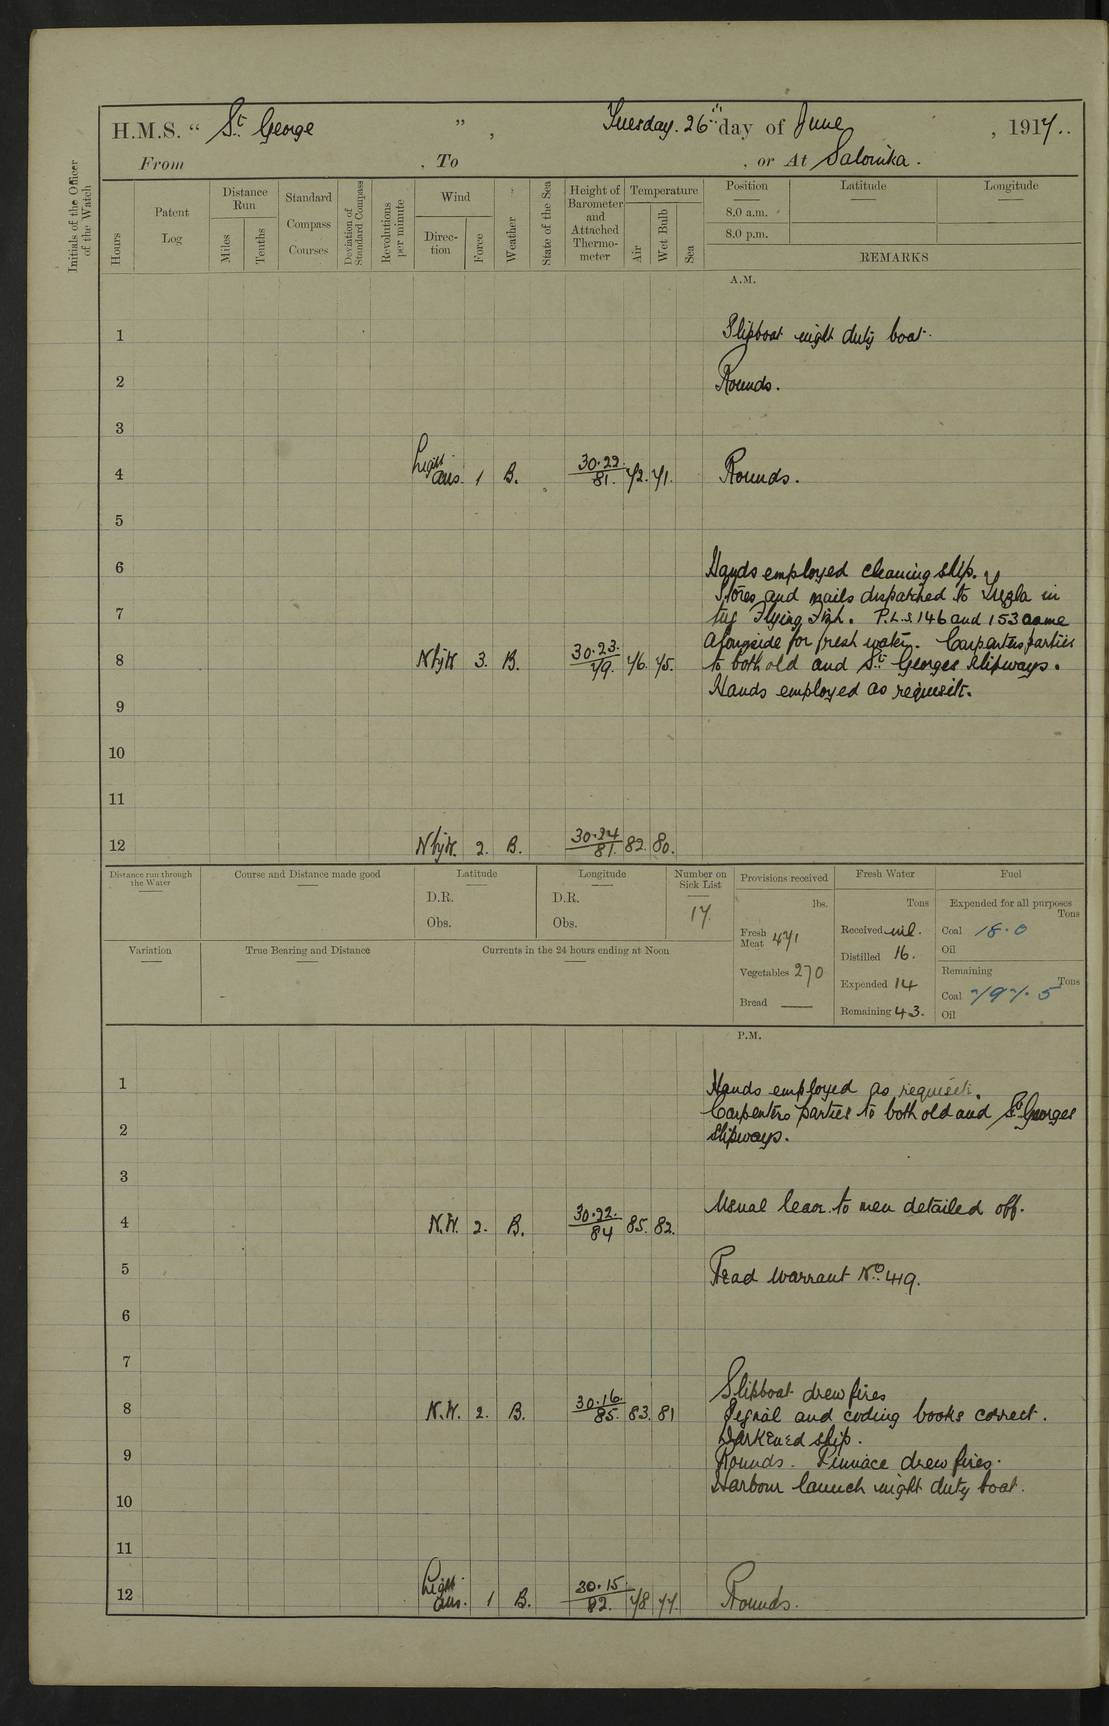 H.M.S. " St George " , Tuesday. 26th day of June , 1917..
From , To , or At Salonika.
Initials of the Officer of the Watch
Hours
Patent Log
Distance Run
Miles
Tenths
Standard Compass Courses
Deviation of Standard Compass
Revolutions per minute
Wind
Direction
Force
Weather
State of the Sea
Height of Barometer and Attached Thermometer
Temperature
Air
Wet Bulb
Sea
Position
8.0 a.m.
8.0 p.m.
Latitude
Longitude
REMARKS
A.M.
1 Slipboat night duty boat.
2 Rounds.
3
4 Light airs. 1 B. 30.22. 81. 72. 71. Rounds.
5
6 Hands employed cleaning ship.
Stores and mails dispatched to in
7 tug Flying Fish. P.L.S. 146 and 153 came
alongside for fresh water. Carpenters parties
8 N by W 3. B. 30.23. 79. 76. 75. to both old and St Georges slipways.
Hands employed as requisite.
9
10
11
12 N by W. 2. B. 30.24 81. 82. 80.
Distance run through the Water
Course and Distance made good
Latitude
D.R.
Obs.
Longitude
D.R.
Obs.
Number on Sick List
17.
Provisions received
lbs.
Fresh Meat 471
Vegetables 270
Bread —
Fresh Water
Tons
Received nil.
Distilled 16.
Expended 14
Remaining 43.
Fuel
Expended for all purposes
Tons
Coal 18.0
Oil
Remaining
Tons
Coal 797.5
Oil
Variation
True Bearing and Distance
Currents in the 24 hours ending at Noon
P.M.
1 Hands employed as requisite.
Carpenters parties to both old and St Georges
2 slipways.
3
Usual leave to men detailed off.
4 N.W. 2. B. 30.22. 84 85. 82.
5 Read warrant No. 419.
6
7
Slipboat drew fires
8 N.W. 2. B. 30.16. 85. 83. 81 Signal and coding books correct.
Darkened ship.
9 Rounds. Pinnace drew fires.
Harbour launch night duty boat.
10
11
12 Light airs. 1 B. 30.15 82. 78 77. Rounds.